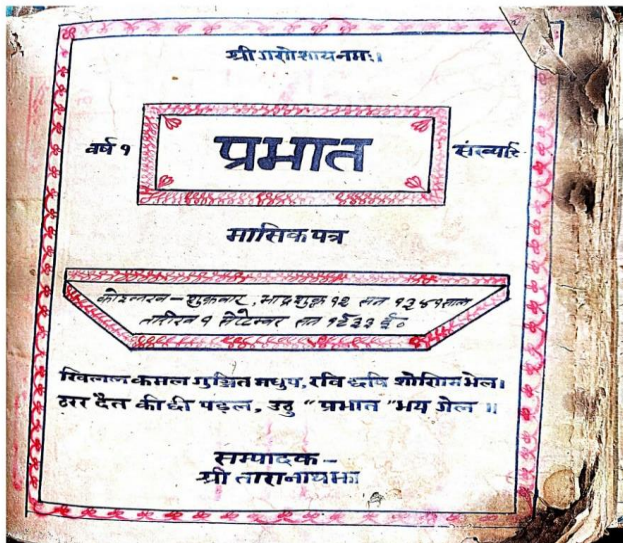 श्री गणेशाय नमः।
वर्ष १ प्रभात
मासिक पत्र
कोइलख – शुक्रवार, भाद्र शुक्ल १२ सन १३४१ साल
तारीख १ सेप्टेम्बर सन १९३३ ई०
खिलल कमल गुञ्जित मधुप, रवि छवि शोभित भेल।
ठरर दैत की छी पड़ल, उठु "प्रभात" भय गेल ॥
सम्पादक –
श्री तारानाथ झा